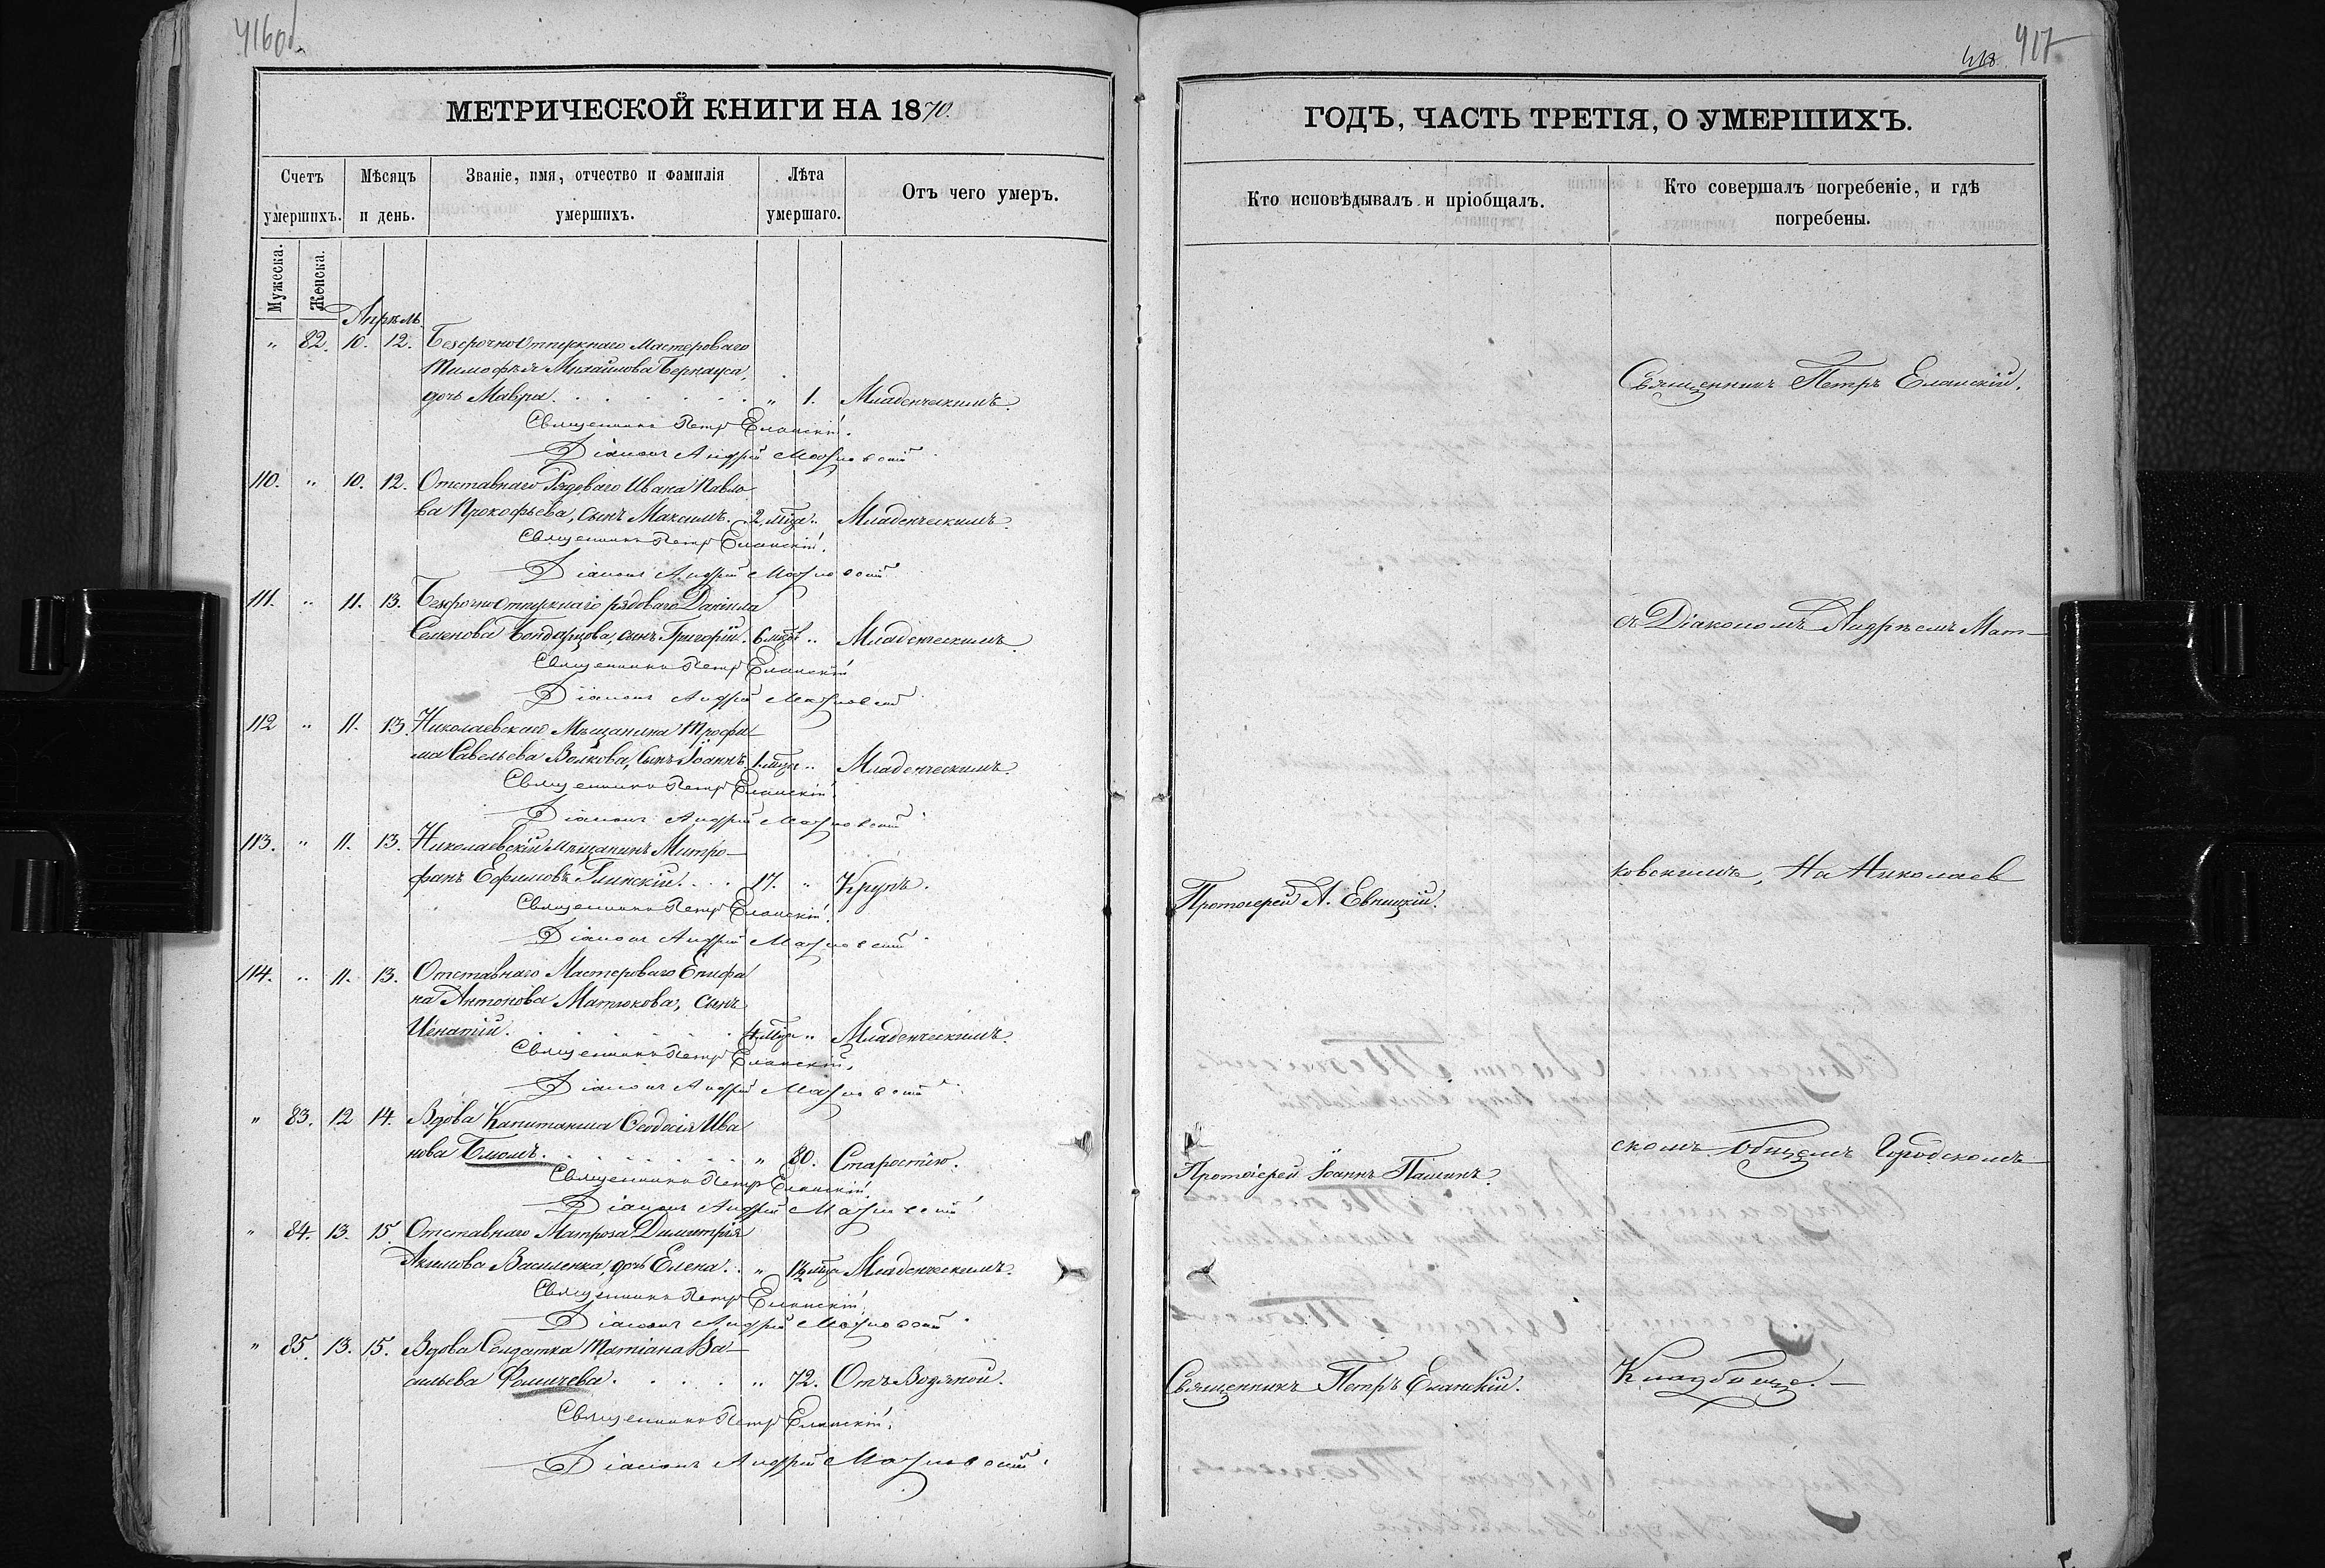 416об.
МЕТРИЧЕСКОЙ КНИГИ НА 1870.
Счетъ умершихъ.
Мѣсяцъ и день.
Званіе, имя, отчество и фамилія умершихъ.
Лѣта умершаго.
Отъ чего умеръ.
Мужеска.
Женска.
Апрѣль
" 82. 10. 12. Безсрочноотпускнаго Мастероваго
Тимофѣя Михайлова Бернауса,
дочь Мавра. " 1. Младенческимъ.
Священникъ Петръ Еланскій.
Діаконъ Андрей Матковскій
110. " 10. 12. Отставнаго Рядоваго Ивана Павло
ва Прокофьева, сынъ Максимъ. 2 мѣся. " Младенческимъ.
Священникъ Петръ Еланскій.
Діаконъ Андрей Матковскій
111. " 11. 13. Безсрочноотпускнаго рядоваго Даніила
Семенова Бондарцова, сынъ Григорій. 6 мѣся " Младенческимъ.
Священникъ Петръ Еланскій
Діаконъ Андрей Матковскій
112 " 11. 13. Николаевскаго Мѣщанина Трофи
ма Савельева Волкова, Сынъ Іоаннъ. 1 мѣся " Младенческимъ.
Священникъ Петръ Еланскій.
Діаконъ Андрей Матковскій
113. " 11. 13. Николаевскій мѣщанинъ Митро
фанъ Ефимовъ Глинскій. 17. " Крупъ.
Священникъ Петръ Еланскій.
Діаконъ Андрей Матковскій
114. " 11. 13. Отставнаго Мастероваго Епифа
на Антонова Матюкова, сынъ
Игнатій. 4 мѣся " Младенческимъ.
Священникъ Петръ Еланскій,
Діаконъ Андрей Матковскій
" 83. 12 14. Вдова Капитанша Ѳеодосія Ива
нова Блюмъ. " 80. Старостію.
Священникъ Петръ Еланскій.
Діаконъ Андрей Матковскій
" 84. 13. 15. Отставнаго Матроса Димитрія
Акимова Василенка, дочь Елена. " 1½ мѣся Младенческимъ.
Священникъ Петръ Еланскій.
Діаконъ Андрей Матковскій
" 85. 13. 15. Вдова Солдатка Татіана Ва
сильева Фомичева. " 72. Отъ Водяной.
Священникъ Петръ Еланскій,
Діаконъ Андрей Матковскій.
418 417
ГОДЪ, ЧАСТЬ ТРЕТІЯ, О УМЕРШИХЪ.
Кто исповѣдывалъ и пріобщалъ.
Кто совершалъ погребеніе, и гдѣ
погребены.
Священникъ Петръ Еланскій.
съ Діакономъ Андреемъ Мат
ковскимъ, На Николаев
Протоіерей А. Евницкій.
скомъ общемъ Городскомъ
Протоіерей Іоаннъ Пашинъ.
Священникъ Петръ Еланскій.
Кладбище.